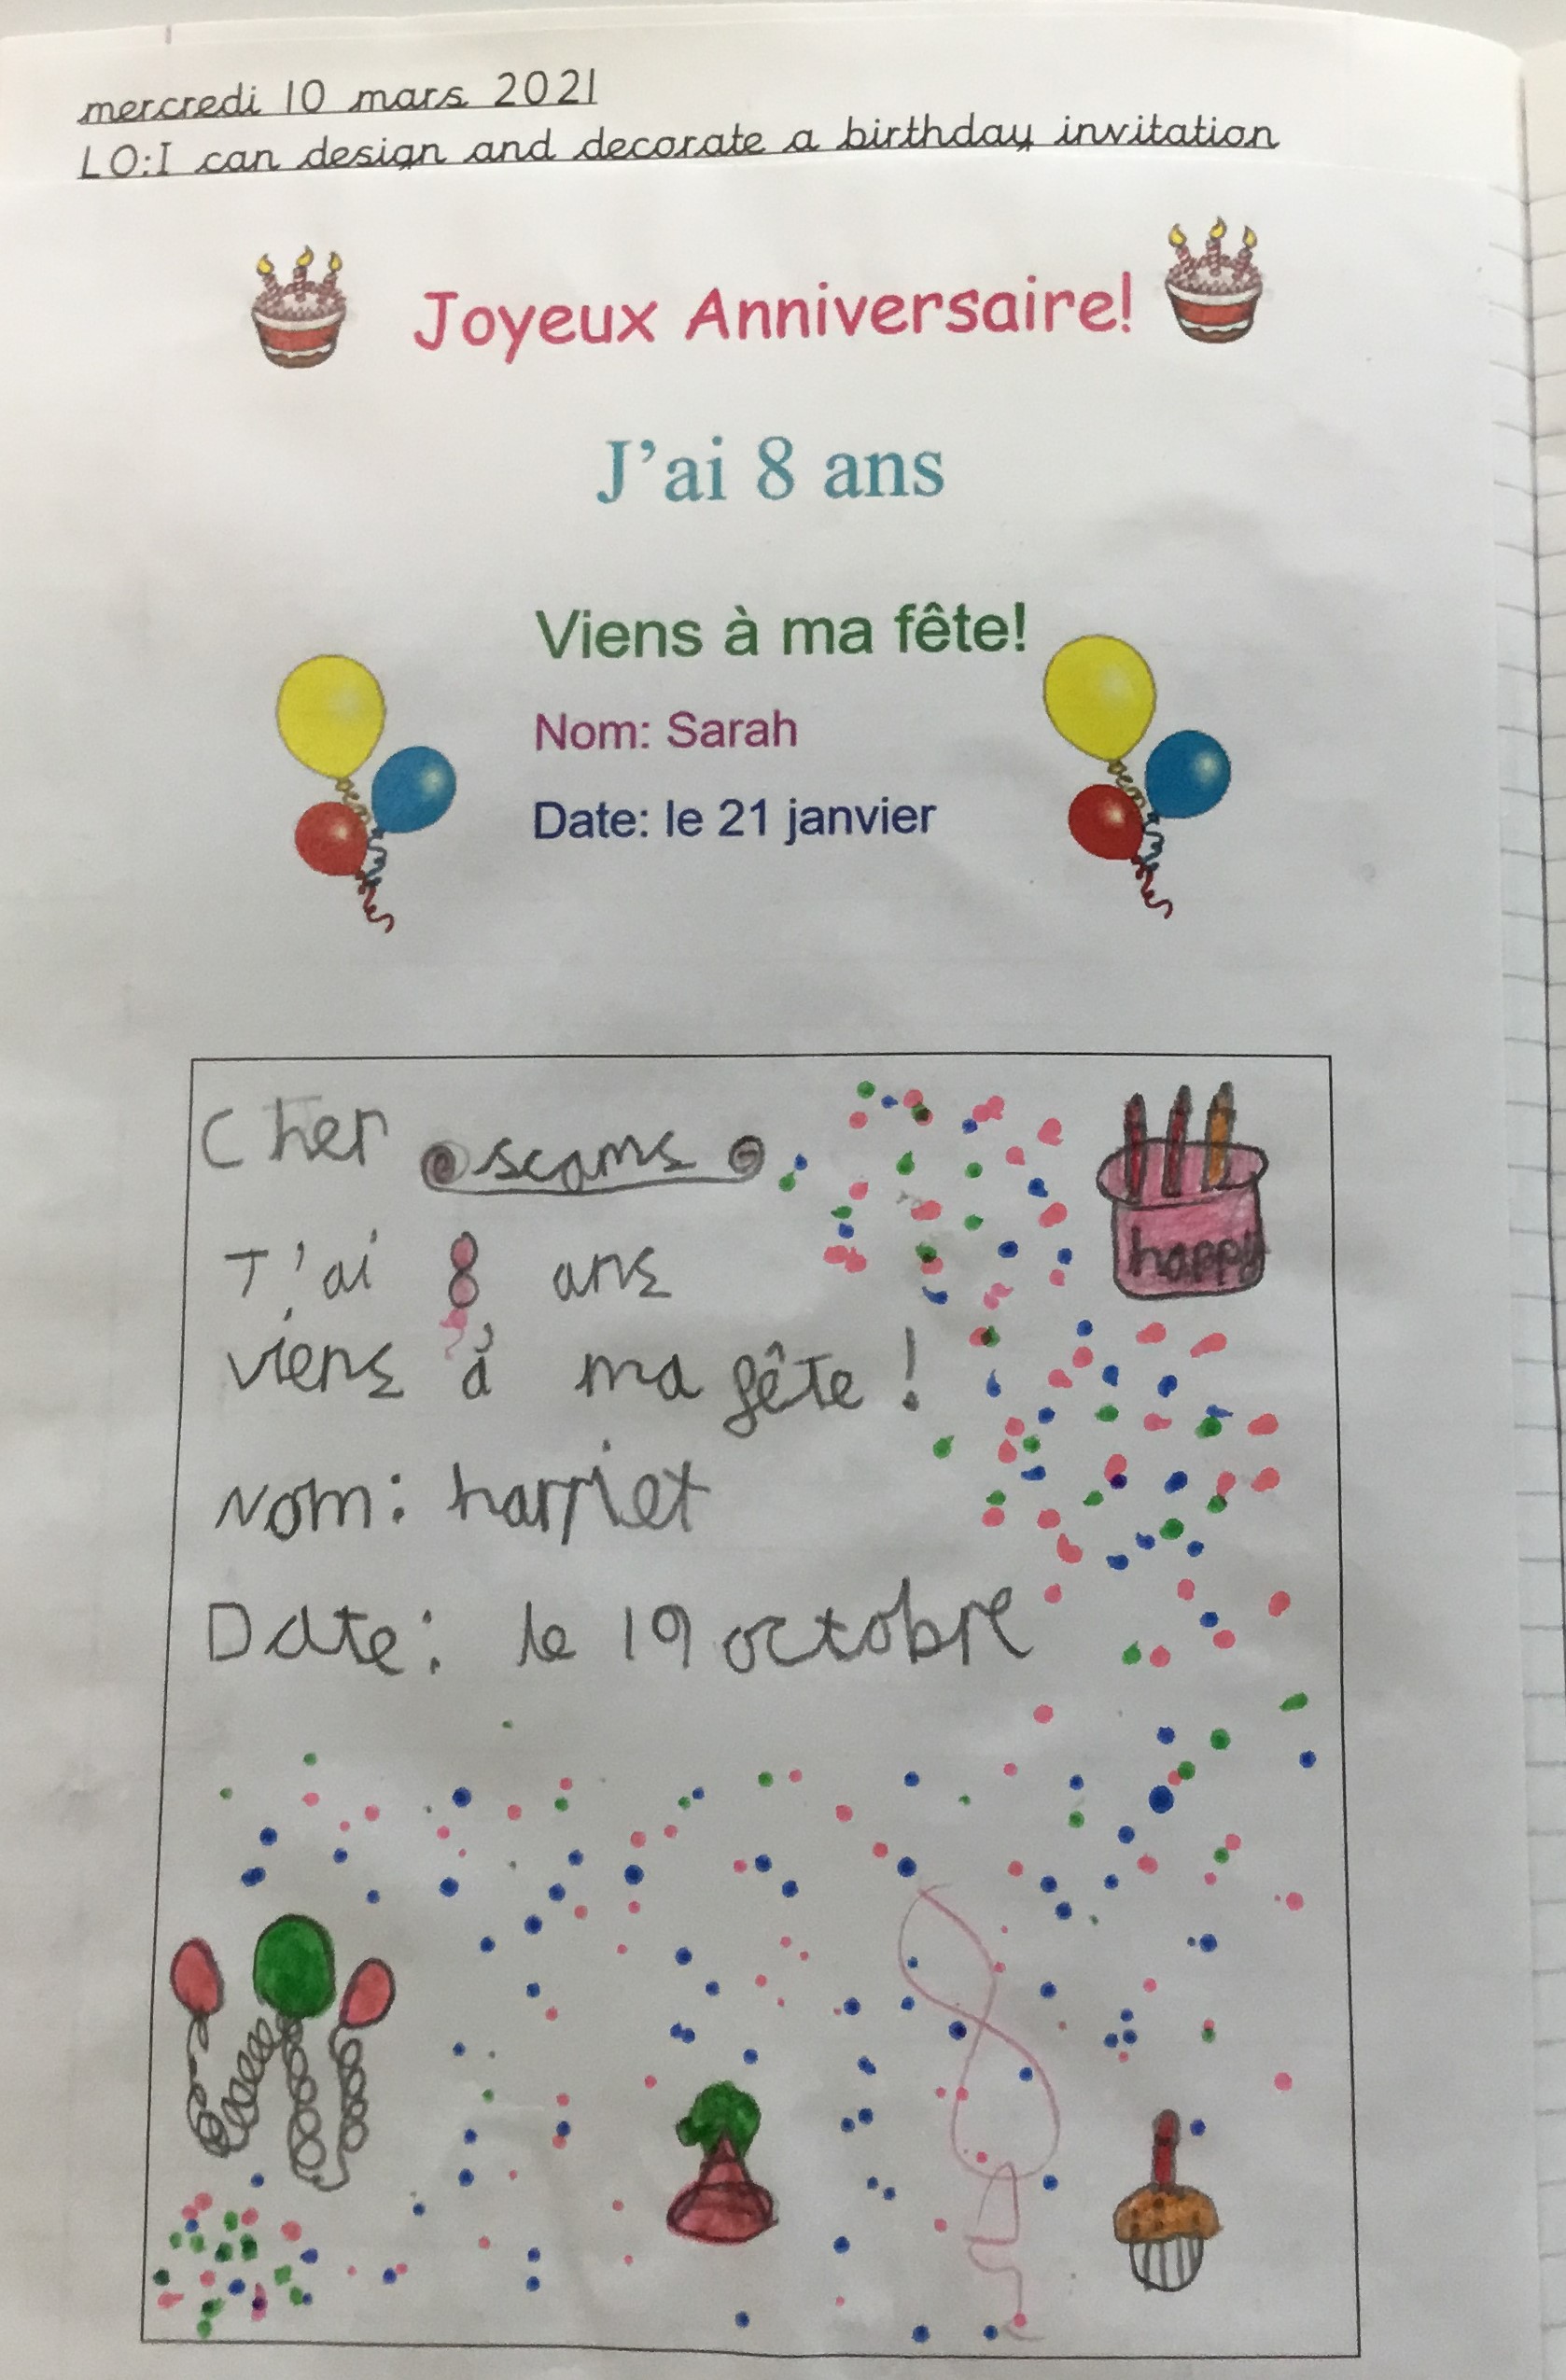 mercredi 10 mars 2021
LO:I can design and decorate a birthday invitation
Joyeux Anniversaire!
J'ai 8 ans
Viens à ma fête!
Nom: Sarah
Date: le 21 janvier
Cher
happy
J'ai 8 ans
viens à ma fête!
Nom: harriet
Date: le 19 octobre